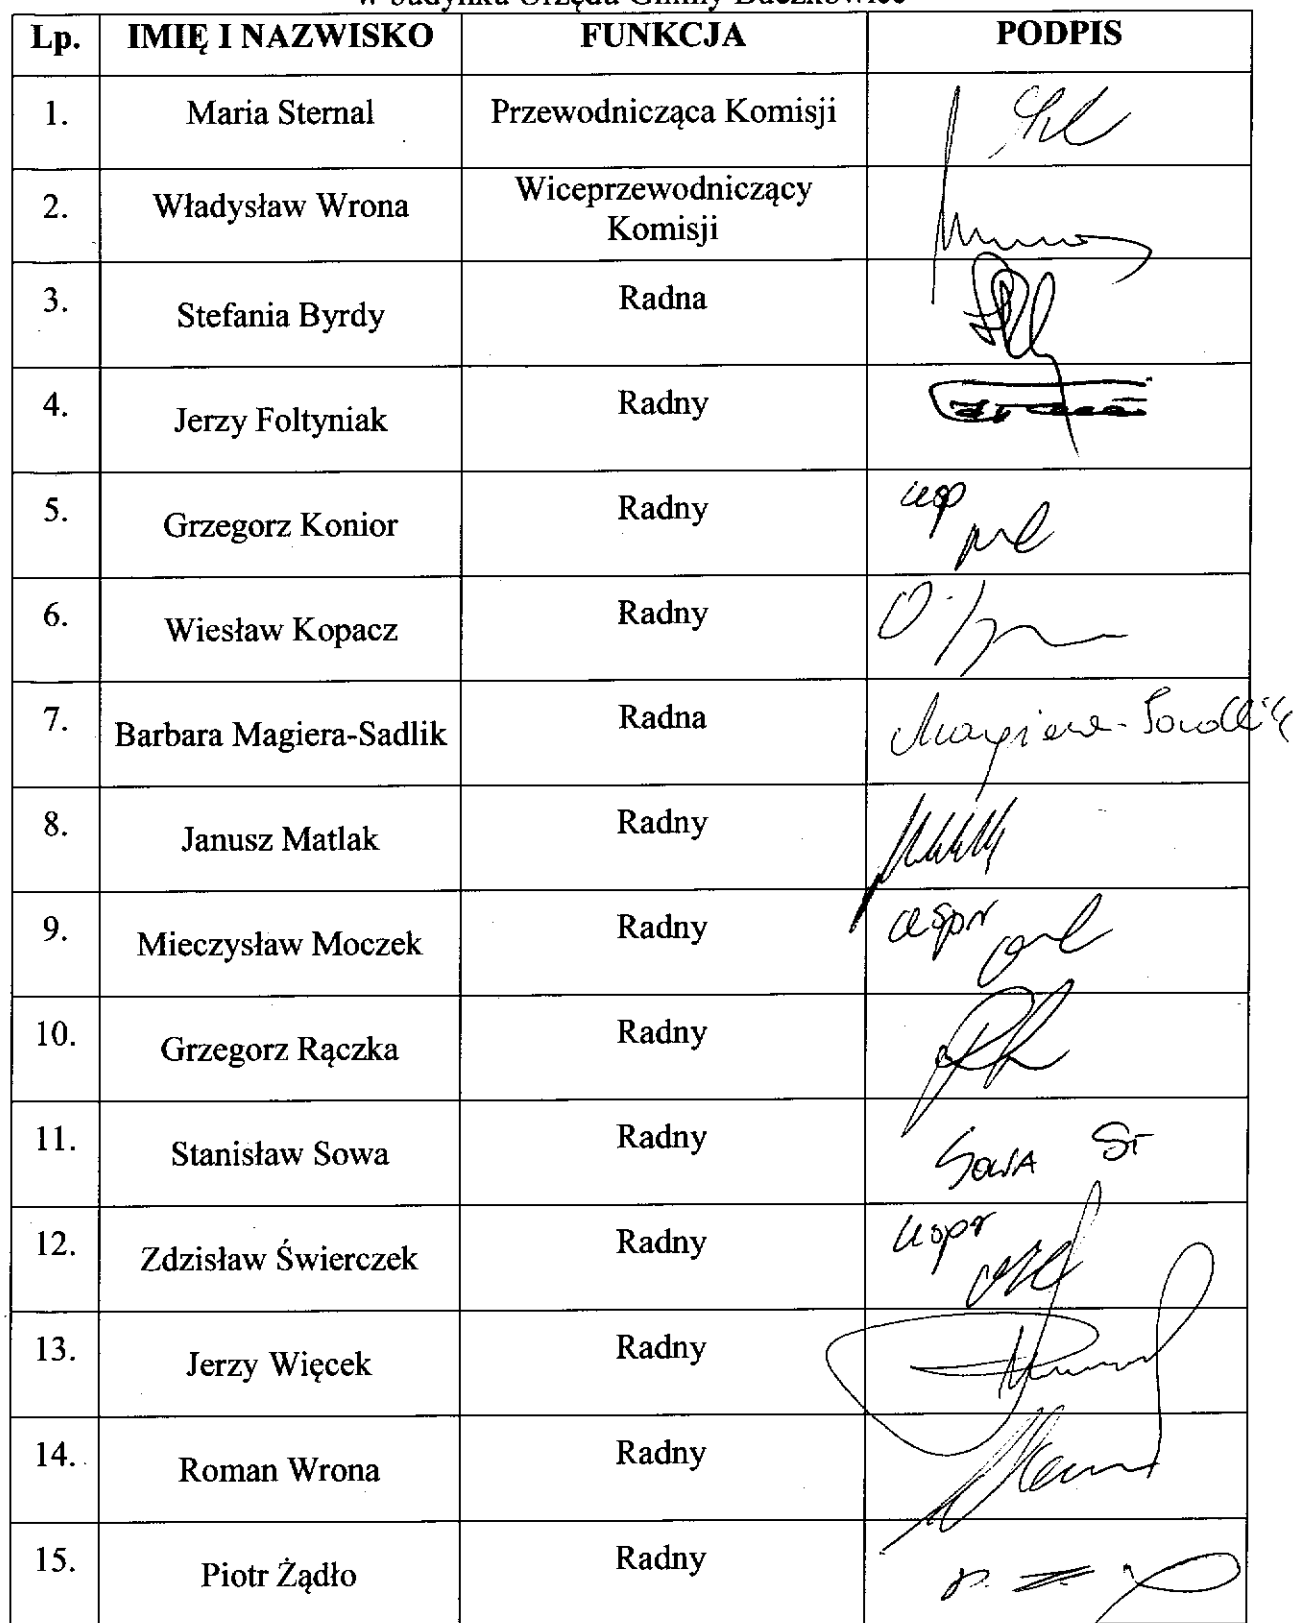 Urzędu Gminy Buczkowice
Lp. IMIĘ I NAZWISKO FUNKCJA PODPIS
1. Maria Sternal Przewodnicząca Komisji
2. Władysław Wrona Wiceprzewodniczący
Komisji
3. Stefania Byrdy Radna
4. Jerzy Foltyniak Radny
5. Grzegorz Konior Radny
6. Wiesław Kopacz Radny
7. Barbara Magiera-Sadlik Radna Magiera-Sadlik
8. Janusz Matlak Radny
9. Mieczysław Moczek Radny
10. Grzegorz Rączka Radny
11. Stanisław Sowa Radny SOWA ST
12. Zdzisław Świerczek Radny
13. Jerzy Więcek Radny
14. Roman Wrona Radny
15. Piotr Żądło Radny